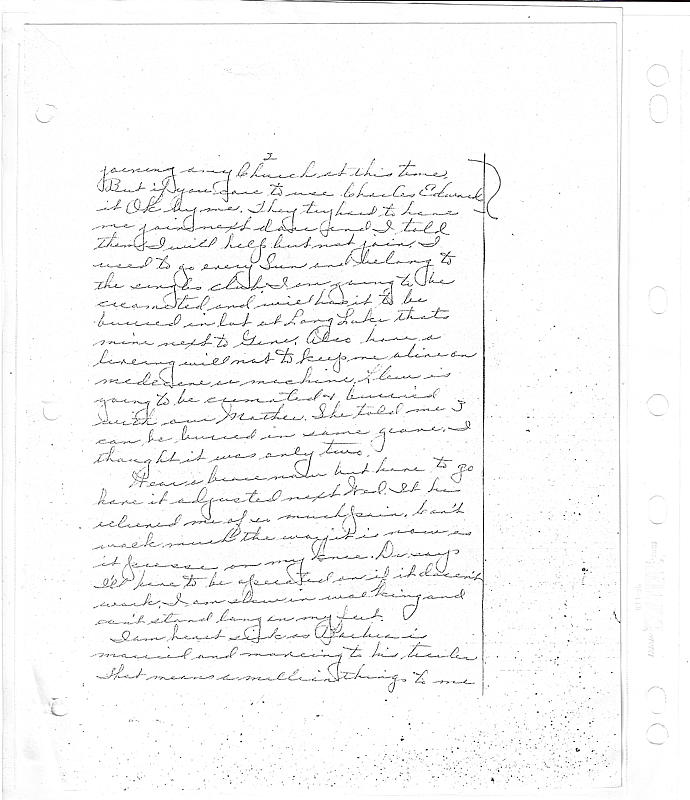 2
joining any Church at this time.
But if you care to use Charles Edward
it Ok by me. They tryied to have
me join next door and I told
them I will help but not join. I
used to go every Sun and belong to
the singles club. I am going to be
creamated and will has it to be
burried in lot at Long Lake thats
mine next to Gene. Also have a
liveing will not to keep me alive on
medesene or machine. is
going to be cremated & burried
with our Mother. She told me 3
can be buried in same grave. I
thought it was only two.
Wear a brace now but have to go
have it adjusted next Wed. It has
relieved me of so much pain. Can't
walk much the way it is now as
it presse on my knee. Dr. says
I'll have to be operated on if it doesn't
work. I am slow in walking and
can't stand long on my feet.
I am heart sick as is
married and moveing to his trailer
That means a million things to me